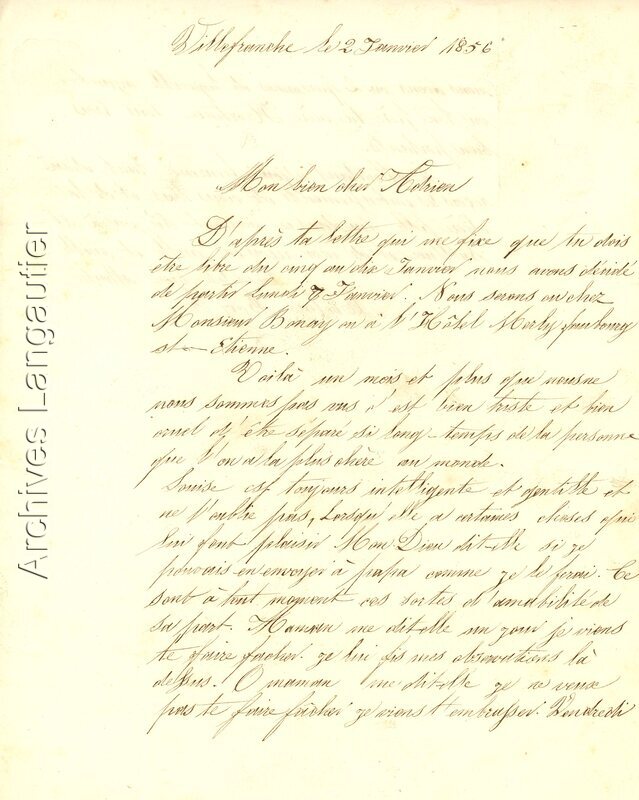 Villefranche le 2 Janvier 1856
Mon bien cher Adrien
D'après ta lettre qui me fixe que tu dois
être libre du cinq au dix Janvier nous avons décidé
de partir lundi 7 Janvier. Nous serons ou chez
Monsieur Bonay ou à l'Hôtel Merly faubourg
st-Etienne.
Voilà un mois et plus que nous ne
nous sommes pas vus c'est bien triste et bien
cruel d'être séparé si long-temps de la personne
que l'on a la plus chère au monde.
Louise est toujours intelligente et gentille et
ne t'oublie pas, Lorsqu'elle a certaines choses qui
lui font plaisir Mon Dieu dit-elle si je
pouvais en envoyer à papa comme je le ferai. Ce
sont à tout moment ces sortes d'amabilité de
sa part. Maman me dit elle un jour je viens
te faire facher. je lui fis mes observations là
dessus. O maman me dit-elle je ne veux
pas te faire facher je viens t'embrasser. Vendredi
Archives Langautier